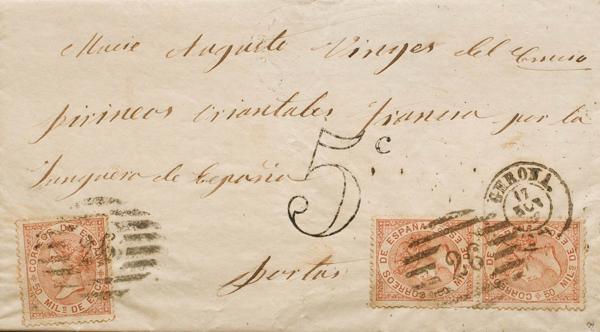 Mucie Auguste Vinges del
pirineos oriantales francia por la
Junquera de España
portas
5 c
GERONA
17
NOV
CORREOS DE ESPAÑA
50 MILS DE ESCO
26
CORREOS DE ESPAÑA
50 MILS DE ESCO
CORREOS DE ESPAÑA
50 MILS DE ESCO